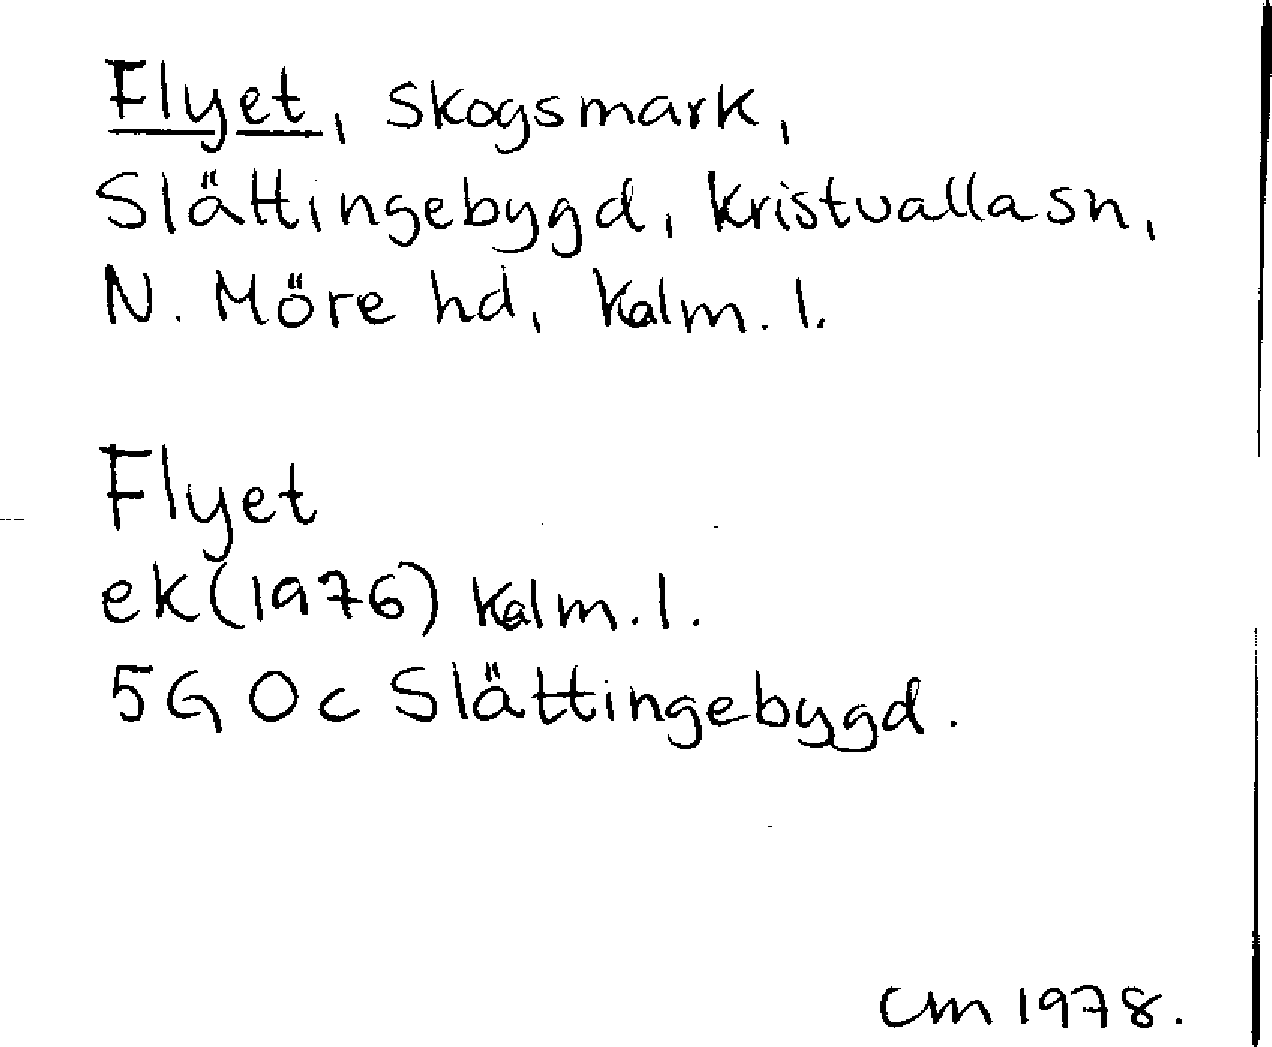 Flyet, Skogsmark,
Slättingebygd, Kristvalla sn,
N. Möre hd, Kalm. l.
Flyet
ek (1976) Kalm. l.
5G Oc Slättingebygd.
CM 1978.